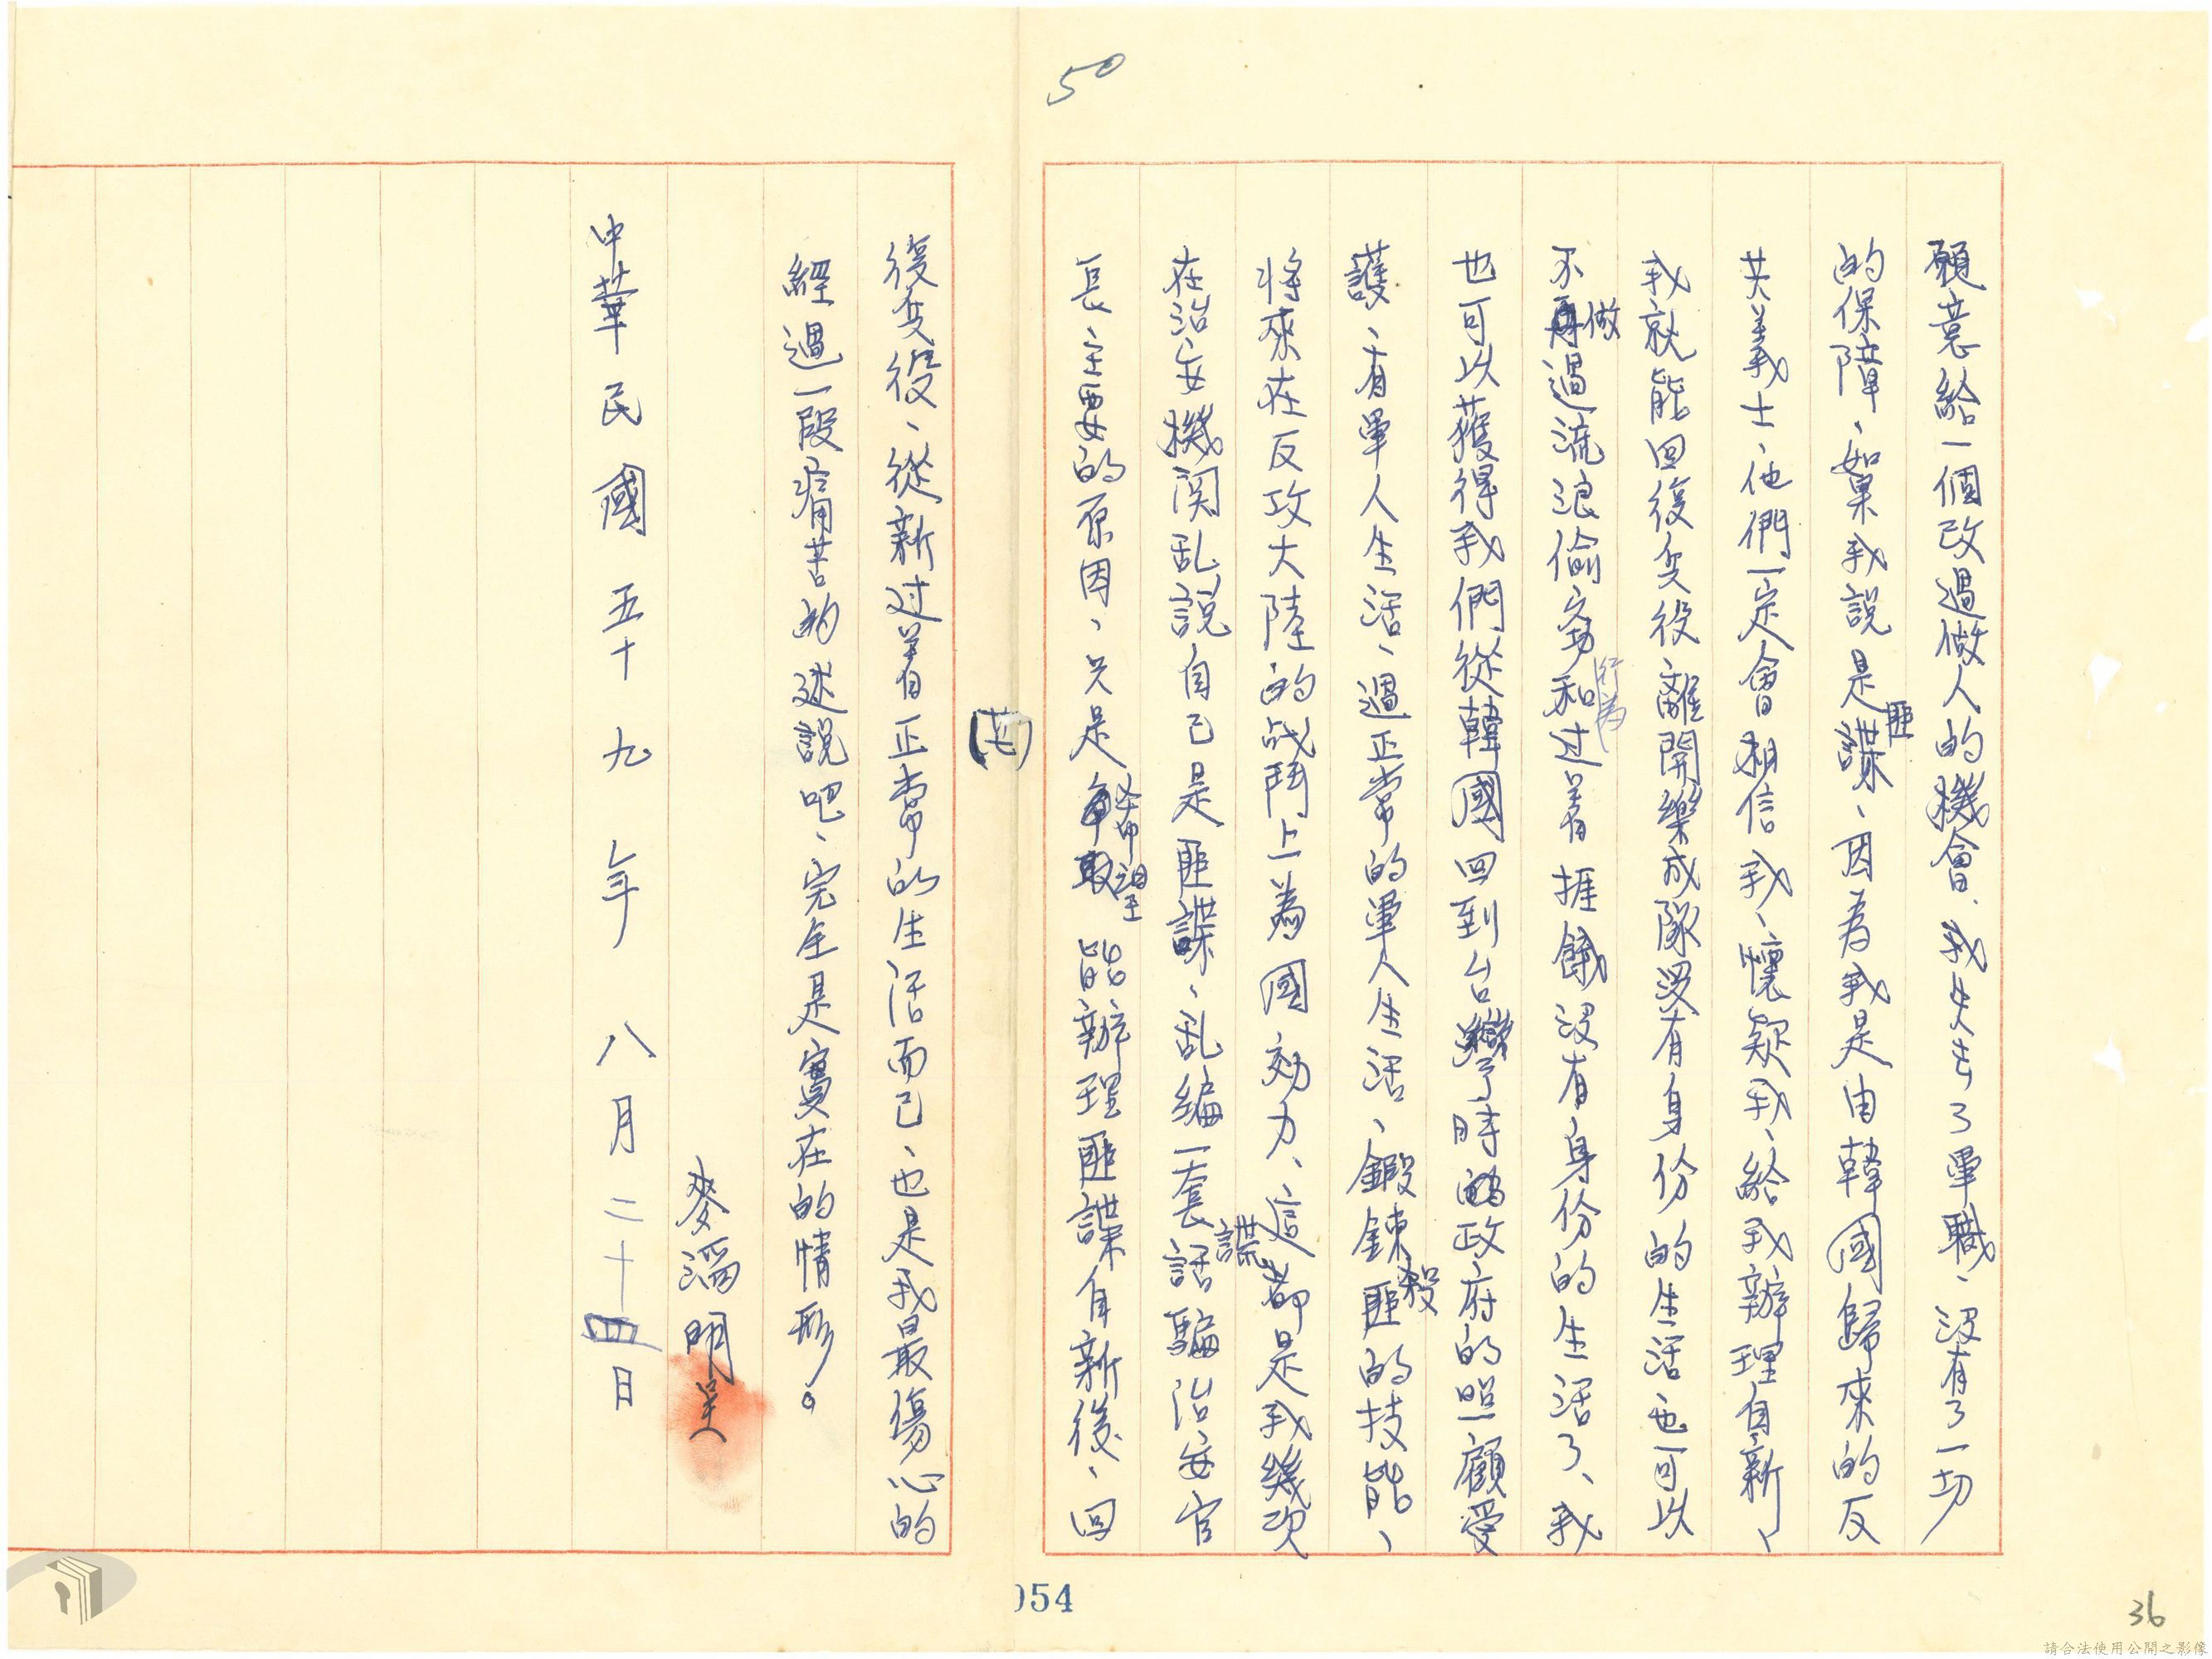 50
願意給一個改過做人的機會、我失去了軍職、沒有了一切
的保障、如果我說是匪諜、因為我是由韓國歸來的反
共義士、他們一定會相信我、懷疑我、給我辦理自新、
我就能回復受役離開樂成隊沒有身份的生活也可以
不再做過流浪偷竊行為和过着捱餓沒有身份的生活了、我
也可以獲得我們從韓國回到台灣時的政府的照顧愛
護、有軍人生活、過正常的軍人生活、鍛鍊殺匪的技能、
將來在反攻大陸的战鬥上為國効力、這都是我幾次
在治安機関乱說自己是匪諜、乱編一套諜話騙治安官
長、主要的原因、只是争取希望能辦理匪諜自新後、回
(廿七)
復受役、從新过着正常的生活而已、也是我最傷心的
經過一段痛苦的述說吧、完全是實在的情形。
麥瀛明呈
中華民國五十九年八月二十四日
054
36
請合法使用公開之影像